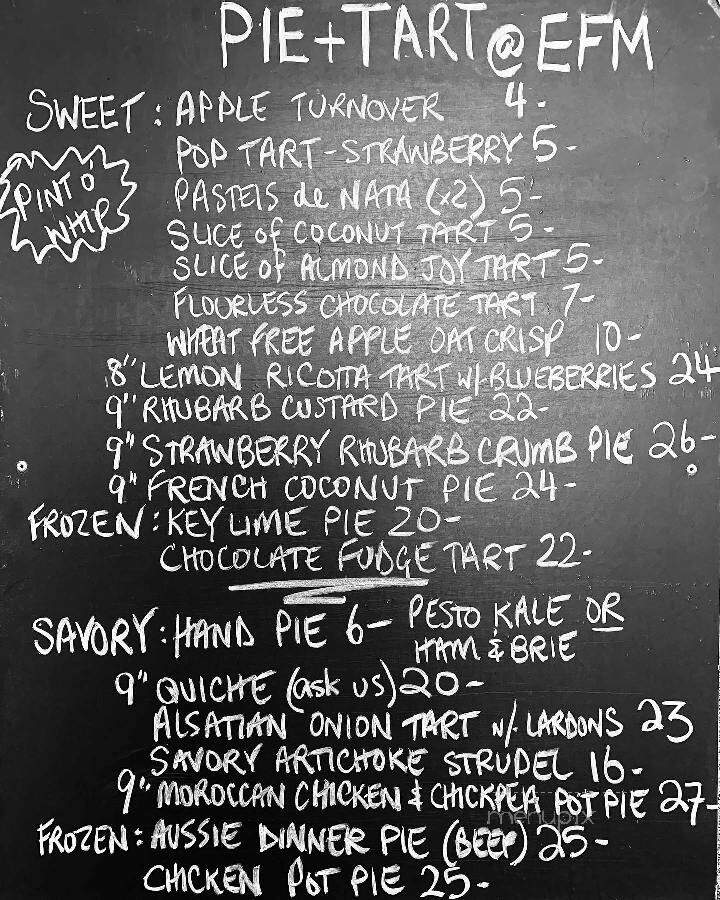 PIE+TART@EFM
SWEET: APPLE TURNOVER 4-
POP TART-STRAWBERRY 5-
PINT O' WHIP
PASTEIS de NATA (x2) 5-
SLICE of COCONUT TART 5-
SLICE of ALMOND JOY TART 5-
FLOURLESS CHOCOLATE TART 7-
WHEAT FREE APPLE OAT CRISP 10-
8" LEMON RICOTTA TART w/BLUEBERRIES 24
9" RHUBARB CUSTARD PIE 22-
9" STRAWBERRY RHUBARB CRUMB PIE 26-
9" FRENCH COCONUT PIE 24-
FROZEN: KEY LIME PIE 20-
CHOCOLATE FUDGE TART 22-
SAVORY: HAND PIE 6- PESTO KALE OR
HAM & BRIE
9" QUICHE (ask us) 20-
ALSATIAN ONION TART w/ LARDONS 23
SAVORY ARTICHOKE STRUDEL 16-
9" MOROCCAN CHICKEN & CHICKPEA POT PIE 27-
menupix
FROZEN: AUSSIE DINNER PIE (BEEF) 25-
CHICKEN POT PIE 25-